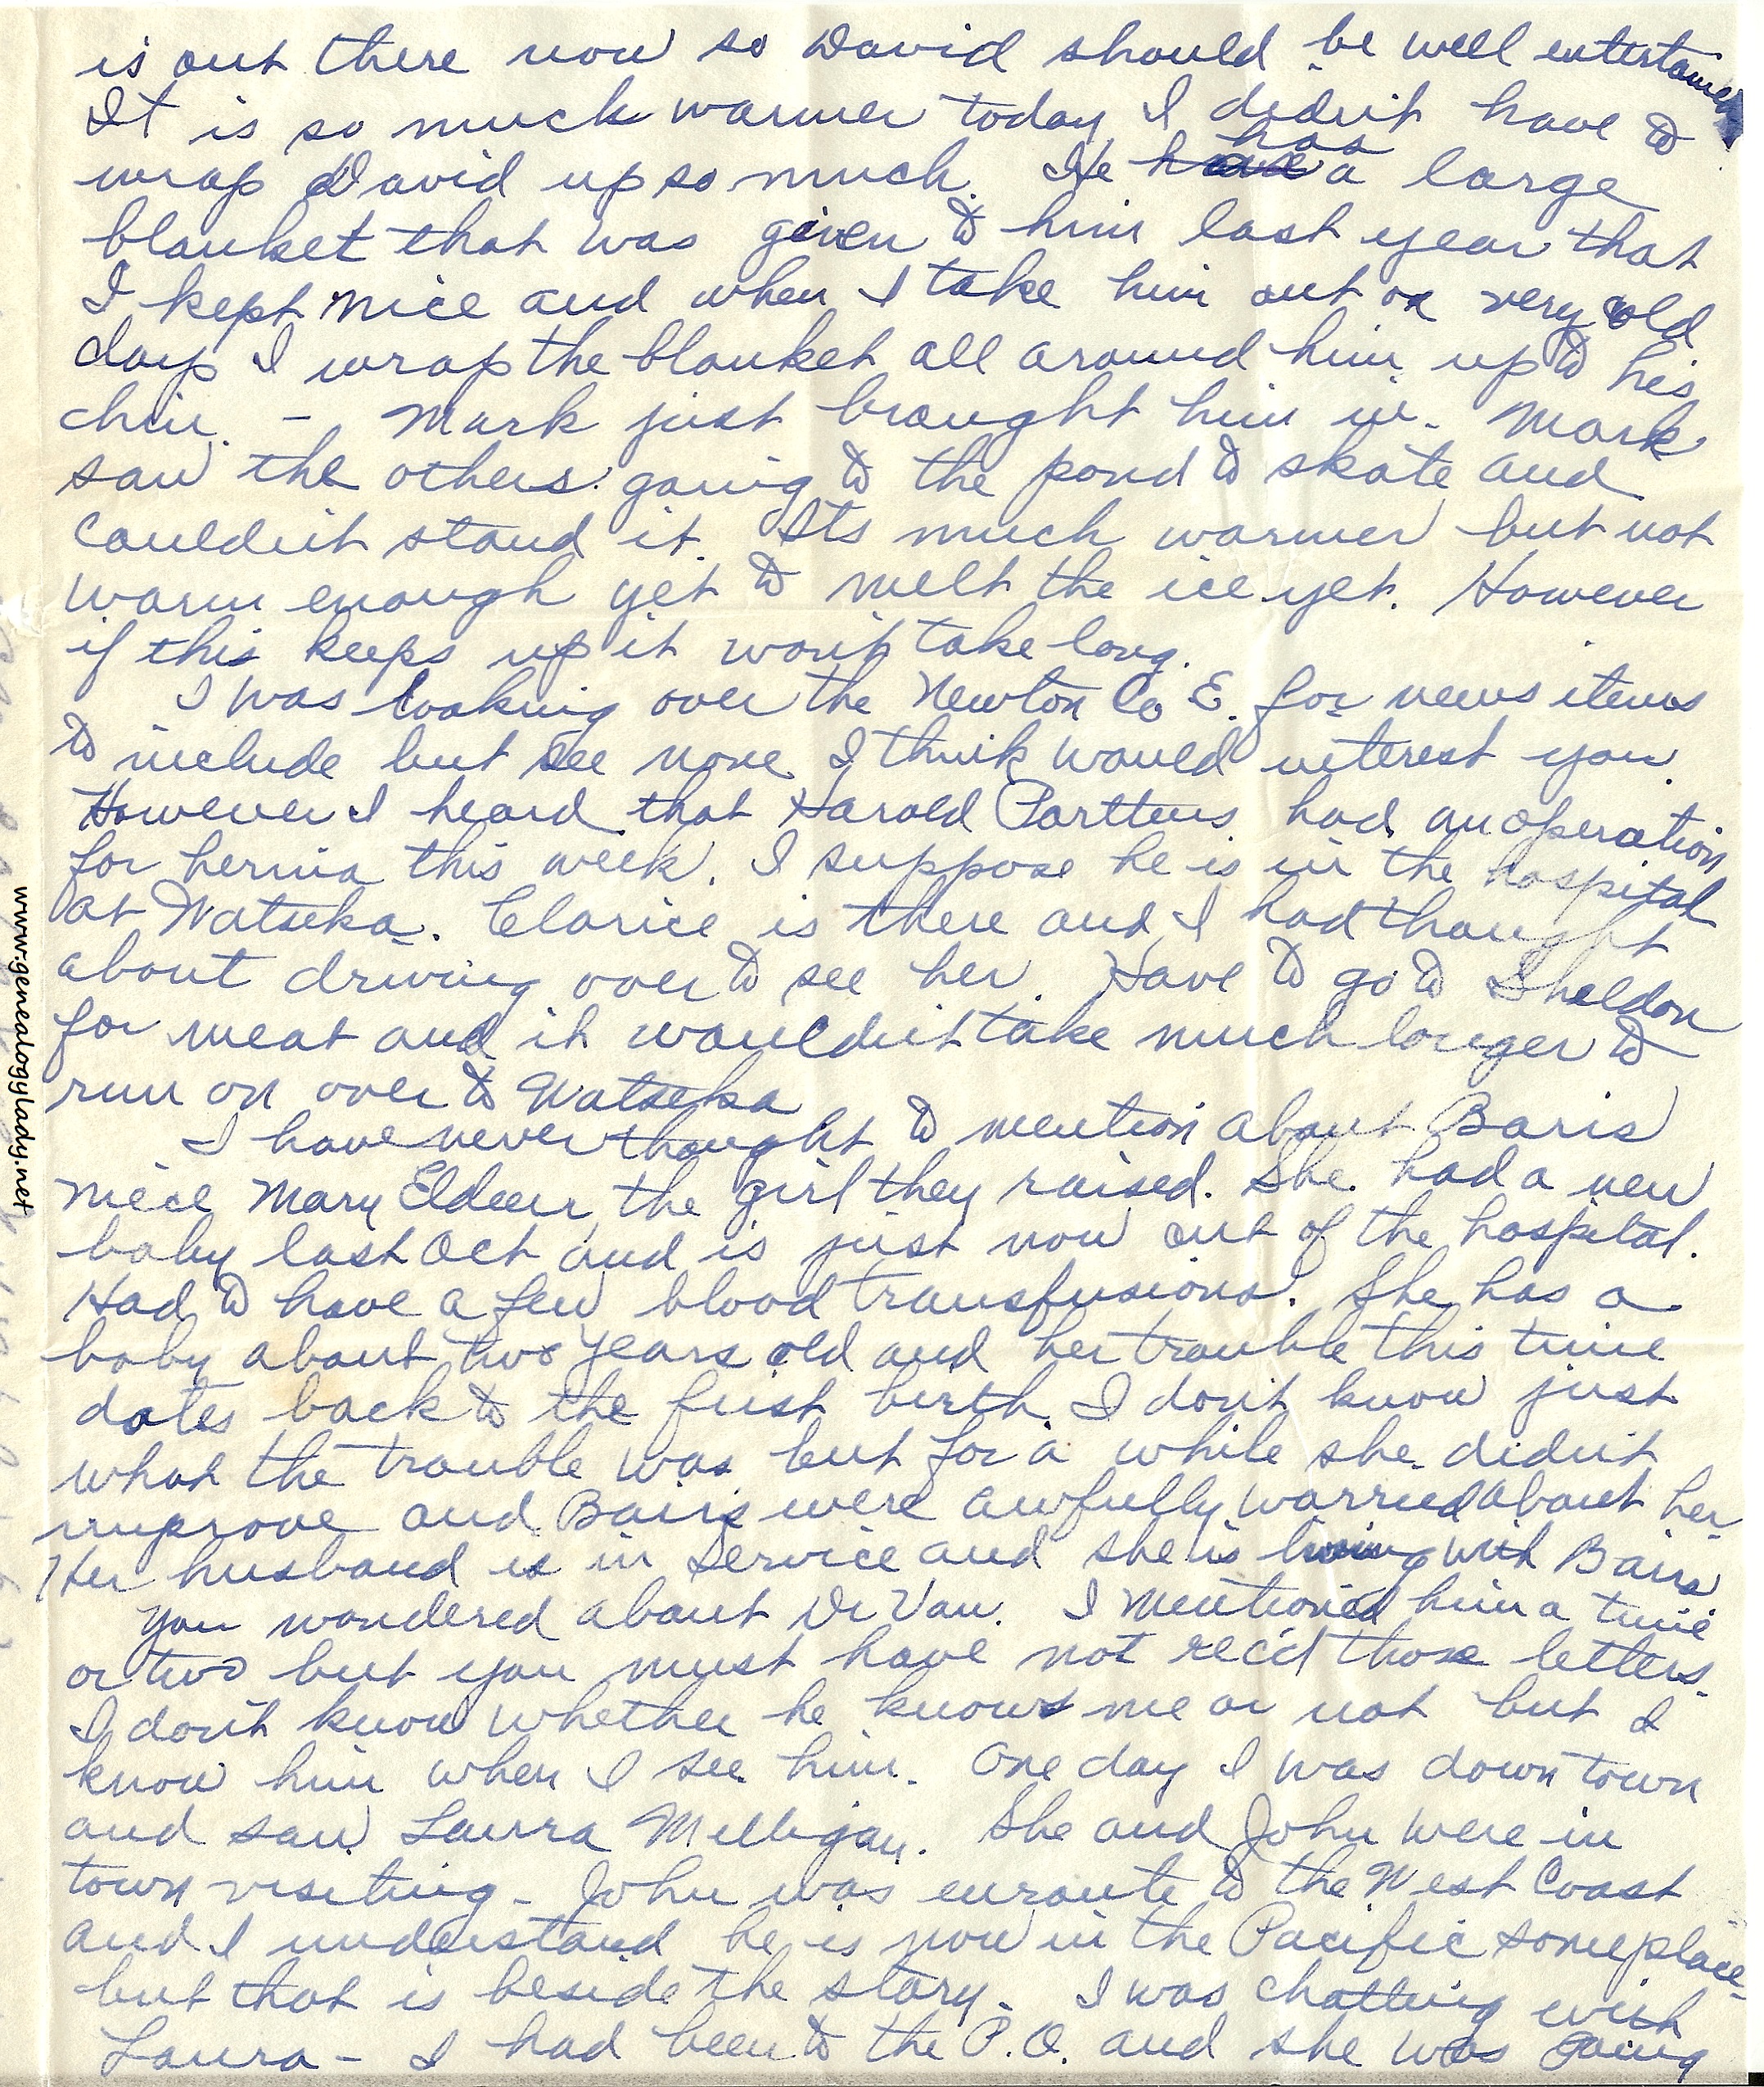 is out there now so David should be well entertained
It is so much warmer today I didn't have to
has
wrap David up so much. He have a large
blanket that was given to him last year that
I kept nice and when I take him out on very cold
days I wrap the blanket all around him up to his
chin. – Mark just brought him in. Mark
saw the others going to the pond to skate and
couldn't stand it. Its much warmer but not
warm enough yet to melt the ice yet. However
if this keeps up it won't take long.
I was looking over the Newton Co E. for news items
to include but see none I think would interest you.
However I heard that Harold Parttens had an operation
for hernia this week. I suppose he is in the hospital
at Watseka. Clarice is there and I had thought
about driving over to see her. Have to go to Sheldon
for meat and it wouldn't take much longer to
run on over to Watseka
I have never thought to mention about Baris
niece Mary Eldeen, the girl they raised. She had a new
baby last Oct and is just now out of the hospital.
Had to have a few blood transfusions. She has a
baby about two years old and her trouble this time
dates back to the first birth. I don't know just
what the trouble was but for a while she didn't
improve and Bairs were awfully worried about her.
Her husband is in service and she is living with Bairs
You wondered about Dr Van. I mentioned him a time
or two but you must have not rec'd those letters.
I don't know whether he knows me or not but I
know him when I see him. One day I was down town
and saw Laura Milligan. She and John were in
town visiting – John was enroute to the West Coast
and I understand he is now in the Pacific someplace
but that is beside the story. I was chatting with
Laura – I had been to the P.O. and she was going
www.genealogylady.net